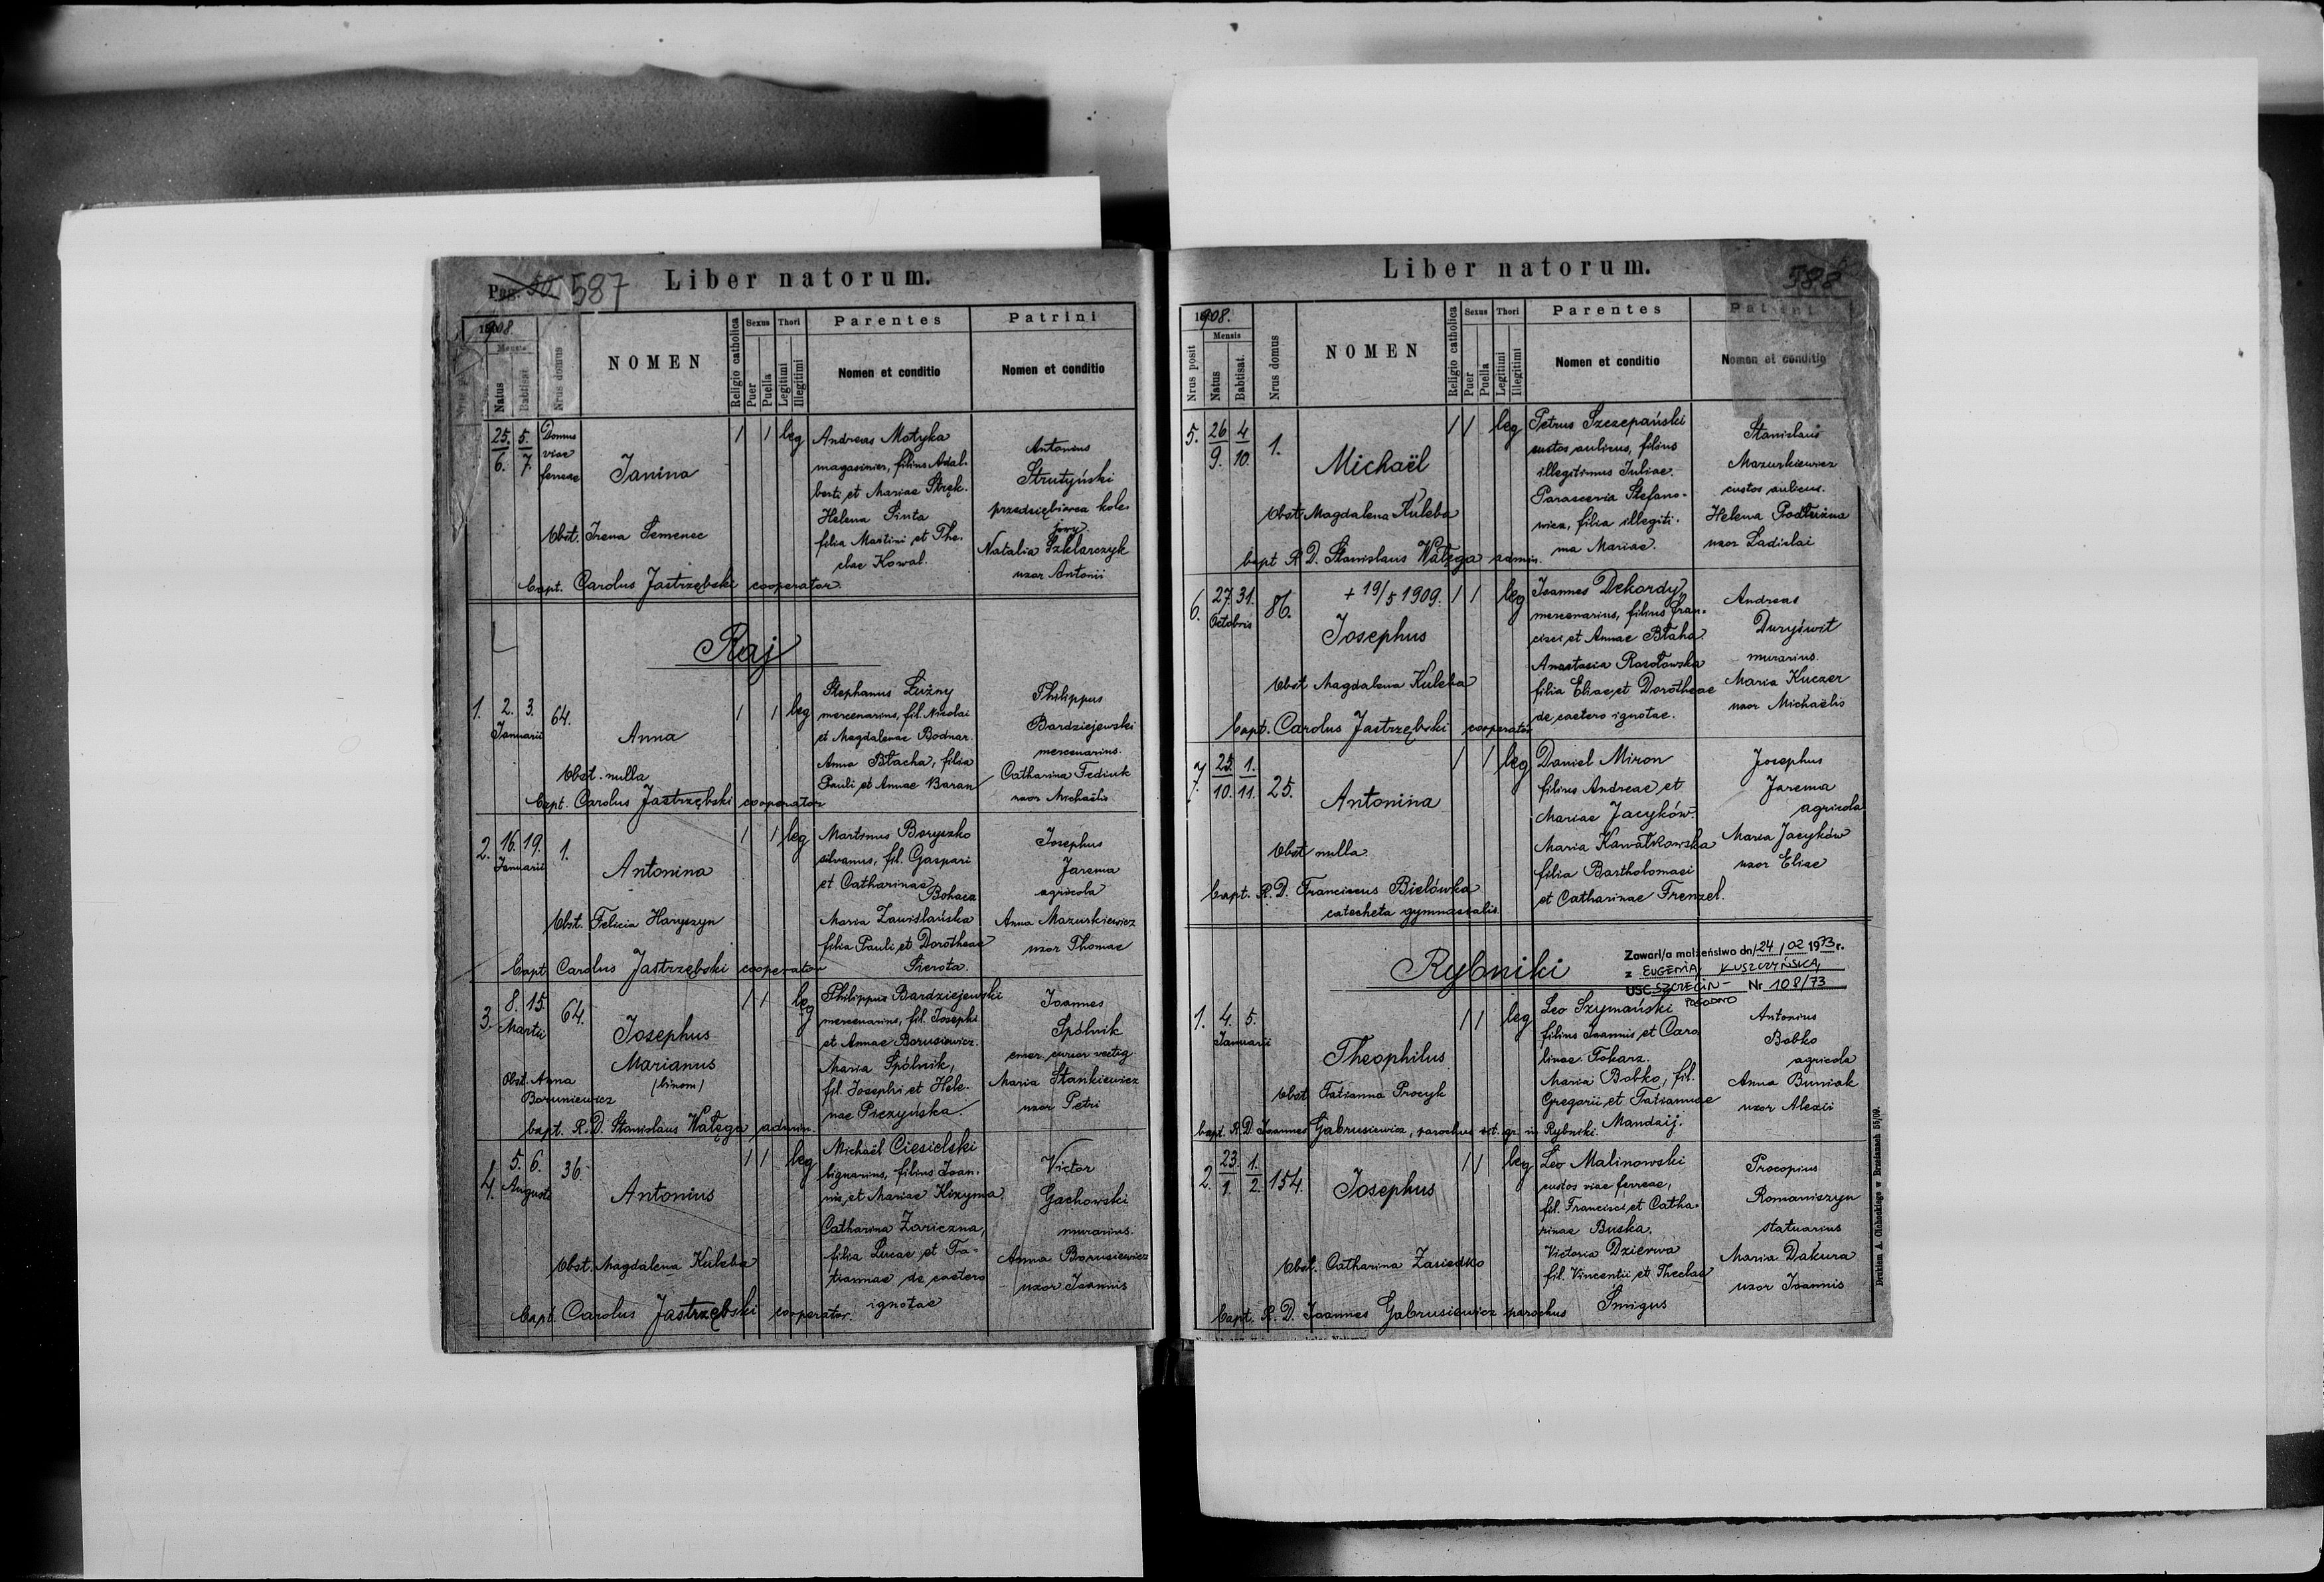 Pag. 50 587
Liber natorum.
1908.
Mensis
Natus
Babtisat.
Nrus domus
NOMEN
Religio catholica
Sexus
Puer
Puella
Thori
Legitimi
Illegitimi
Parentes
Nomen et conditio
Patrini
Nomen et conditio
25. 5. Domus
6. 7. viae
ferreae
Janina
1 1 leg
Andreas Motyka
magasinier, filius Adal-
berti et Mariae Stręk.
Helena Pinta
filia Martini et The-
clae Kowal.
Antonius
Strutyński
przedsiębiorca kole-
jowy
Natalia Szklarczyk
uxor Antonii
Obst. Irena Semenec
bapt. Carolus Jastrzębski cooperator
Raj
1. 2. 3. 64.
Januarii
Anna
1 1 leg
Stephanus Luźny
mercenarius, fil. Nicolai
et Magdalenae Bodnar.
Anna Błacha, filia
Pauli et Annae Baran
Philippus
Bardziejewski
mercenarius.
Catharina Fediuk
uxor Michaëlis
Obst. nulla
bapt. Carolus Jastrzębski cooperator
2. 16. 19. 1.
Januarii
Antonina
1 1 leg
Martinus Boryszko
silvanus, fil. Gaspari
et Catharinae
Bohaca
Maria Zawiślańska
filia Pauli et Dorotheae
Sierota.
Josephus
Jarema
agricola
Anna Mazurkiewicz
uxor Thomae
Obst. Felicia Haryszyn
bapt. Carolus Jastrzębski cooperator
3. 8. 15. 64.
Martii
Josephus
Marianus
(binom)
1 1 leg
Philippus Bardziejewski
mercenarius, fil. Josephi
et Annae Borusiewicz.
Maria Spólnik,
fil. Josephi et Hele-
nae Piczyńska.
Joannes
Spólnik
emer. cursor vectig.
Maria Stankiewicz
uxor Petri
Obst. Anna
Boruniewicz
bapt. R. D. Stanislaus Wałęga admin.
4. 5. 6. 36.
Augusti
Antonius
1 1 leg
Michaël Ciesielski
lignarius, filius Joan-
nis et Mariae Krzyma
Catharina Zariczna,
filia Lucae et Ta-
tiannae de caetero
ignotae
Victor
Gachowski
murarius.
Anna Borusiewicz
uxor Joannis
Obst. Magdalena Kuleba
bapt. Carolus Jastrzębski cooperator.
Liber natorum.
588
1908.
Nrus posit
Mensis
Natus
Babtisat.
Nrus domus
NOMEN
Religio catholica
Sexus
Puer
Puella
Thori
Legitimi
Illegitimi
Parentes
Nomen et conditio
Patrini
Nomen et conditio
5. 26 4 1.
9. 10.
Michaël
1 1 leg
Petrus Szczepański
custos aulicus, filius
illegitimus Juliae.
Parascevia Stefano-
wicz, filia illegiti-
ma Mariae.
Stanislaus
Mazurkiewicz
custos aulicus.
Helena Podłużna
uxor Ladislai
Obst. Magdalena Kuleba
bapt R. D. Stanislaus Wałęga admin.
6. 27. 31. 86.
Octobris
+ 19/5 1909.
Josephus
1 1 leg
Joannes Dekordy
mercenarius, filius Fran-
cisci et Annae Błaha
Anastasia Rosołowska
filia Eliae et Dorotheae
de caetero ignotae.
Andreas
Duryświt
murarius.
Maria Kuczer
uxor Michaëlis
Obst Magdalena Kuleba
bapt. Carolus Jastrzębski cooperator
7. 25. 1. 25.
10. 11.
Antonina
1 1 leg
Daniel Miron
filius Andreae et
Mariae Jacyków.
Maria Kawałkowska
filia Bartholomaei
et Catharinae Frenzel.
Josephus
Jarema
agricola
Maria Jacyków
uxor Eliae
Obst nulla
bapt. R. D. Franciscus Bielówka
catecheta gymnasialis
Rybniki
Zawarł/a małżeństwo dn/24/02 1973 r.
z EUGENIĄ KUSZCZYŃSKĄ
USC SZCZECIN- Nr 108/73
POGODNO
1. 4. 5.
Januarii
Theophilus
1 1 leg
Leo Szymański
filius Joannis et Caro
linae Tokarz.
Maria Bobko, fil.
Gregorii et Tatiannae
Mandzij.
Antonius
Bobko
agricola
Anna Buniak
uxor Alexii
Obst Tatianna Procyk
bapt. R. D. Joannes Gabrusiewicz, parochus rit. gr. in Rybniki.
2. 23. 1. 154.
1. 2.
Josephus
1 1 leg
Leo Malinowski
custos viae ferreae,
fil. Francisci et Catha-
rinae Buska.
Victoria Dzierwa
fil. Vincentii et Theclae
Śmigus
Procopius
Romaniszyn
statuarius
Maria Dakura
uxor Joannis
Obst. Catharina Zasiedko
bapt. R. D. Joannes Gabrusiewicz parochus
Drukiem A. Cichockiego w Brzeżanach 55/09.